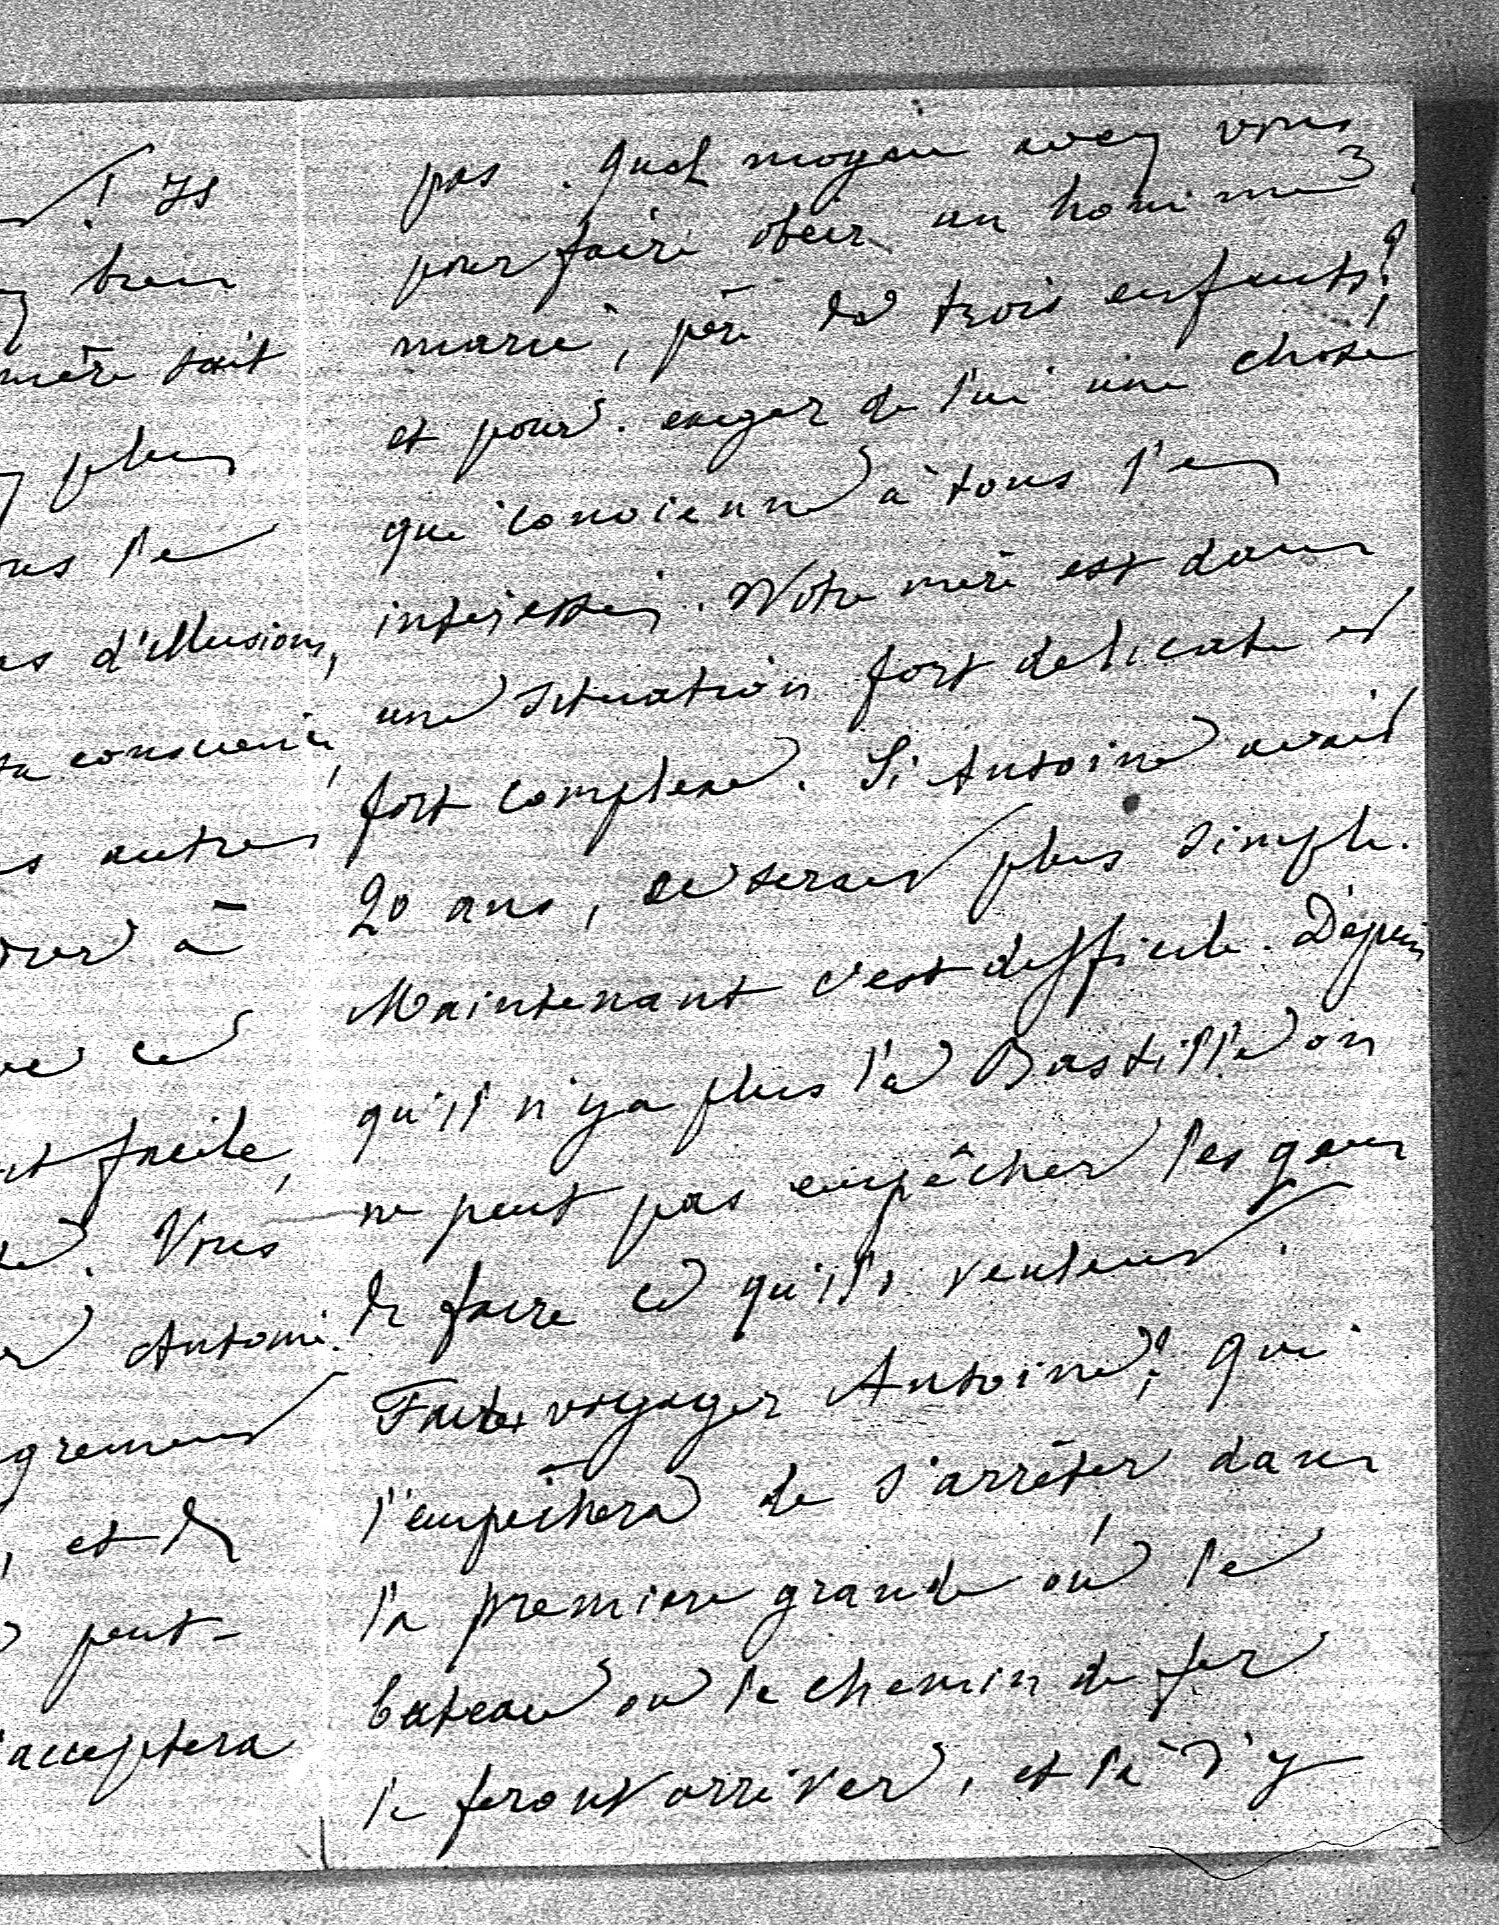 ! Il
bien
mère soit
plus
us le
es d'illusions,
sa conscience,
s autres
à
ce
st facile,
. Vous
Antoine.
grement
, et de
peut-
acceptera
pas. Quel moyen avez vous
pour faire obeir un homme
marié, père de trois enfants?
et pour exiger de lui une chose
qui convienne à tous les
intéressés. Notre mère est dans
une situation fort delicate et
fort complexe. Si Antoine avait
20 ans, ce serait plus simple.
Maintenant c'est difficile. Depuis
qu'il n'y a plus la Bastille on
ne peut pas empêcher les gens
de faire ce qu'ils veulent.
Faites voyager Antoine; qui
l'empêchera de s'arrêter dans
la premiere grande où le
bateau ou le chemin de fer
le feront arriver, et là d'y